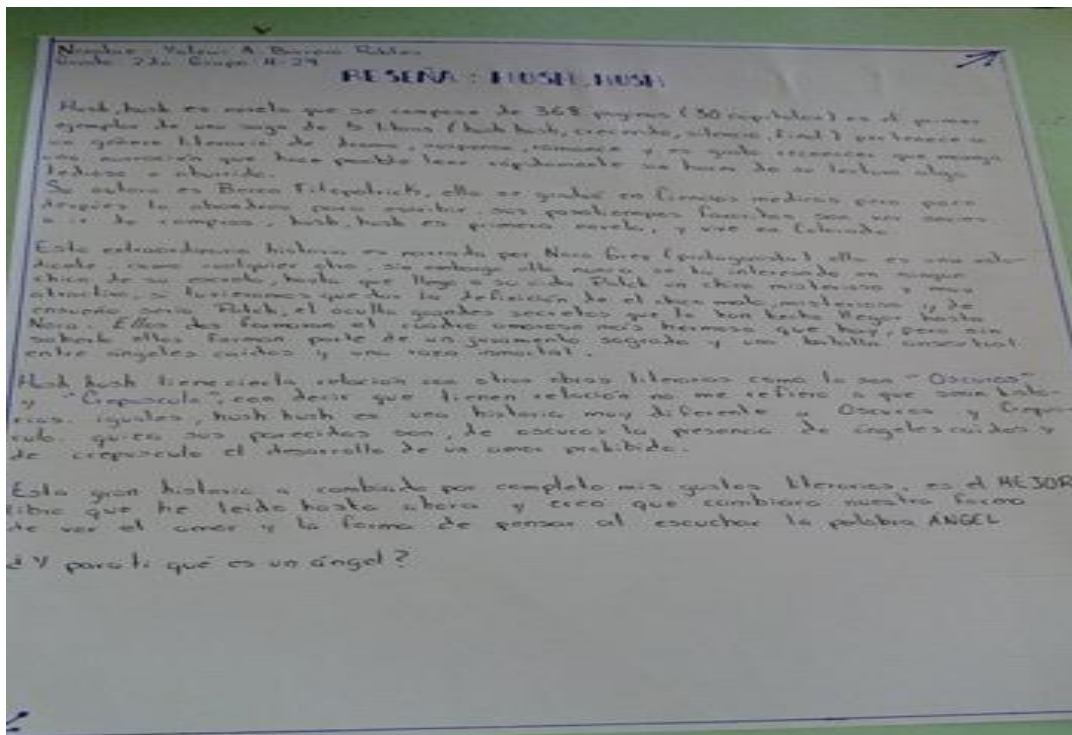 Nombre: A.
Grado: 2do Grupo: H-29
RESEÑA: HUSH, HUSH
Hush, hush es novela que se compone de 368 paginas (30 capitulos) es el primer
ejemplar de una saga de libros (hush hush, crecendo, silencio, final) pertenece a
un género literario de drama, suspenso, romance y es grato reconocer que maneja
una narración que hace posible leer rápidamente sin hacer de su lectura algo
tedioso o aburrido.
Su autora es Becca Fitzpatrick, ella se graduó en Ciencias medicas pero poco
después lo abandono para escribir, sus pasatiempos favoritos son
o ir de compras, hush, hush es primera novela, y vive en Colorado.
Esta extraordinaria historia es narrada por Nora Grey (protagonista) ella es una
como cualquier otra, sin embargo ella nunca se ha interesado en ningun
chico de su escuela, hasta que llega a su vida Patch un chico misterioso y muy
atractivo, si tuvieramos que dar la definición de el chico malo, misterioso y de
ensueño seria Patch, el oculta grandes secretos que lo han hecho llegar hasta
Nora. Ellos dos formaran el cuadro amoroso más hermoso que hay, pero sin
saberlo ellos forman parte de un juramento sagrado y una batalla ancestral
entre angeles caidos y una raza inmortal.
Hush hush tiene cierta relacion con otras obras literarias como lo son "Oscuros"
y "Crepusculo", con decir que tienen relación no me refiero a que sean histo-
rias iguales, hush hush es una historia muy diferente a Oscuros y Crepus-
culo. sus parecidos son, de oscuros la presencia de ángeles caidos y
de crepusculo el desarrollo de un amor prohibido.
Esta gran historia a cambiado por completo mis gustos literarios, es el MEJOR
libro que he leido hasta ahora y creo que cambiara nuestra forma
de ver el amor y la forma de pensar al escuchar la palabra ANGEL
¿Y para ti qué es un ángel?